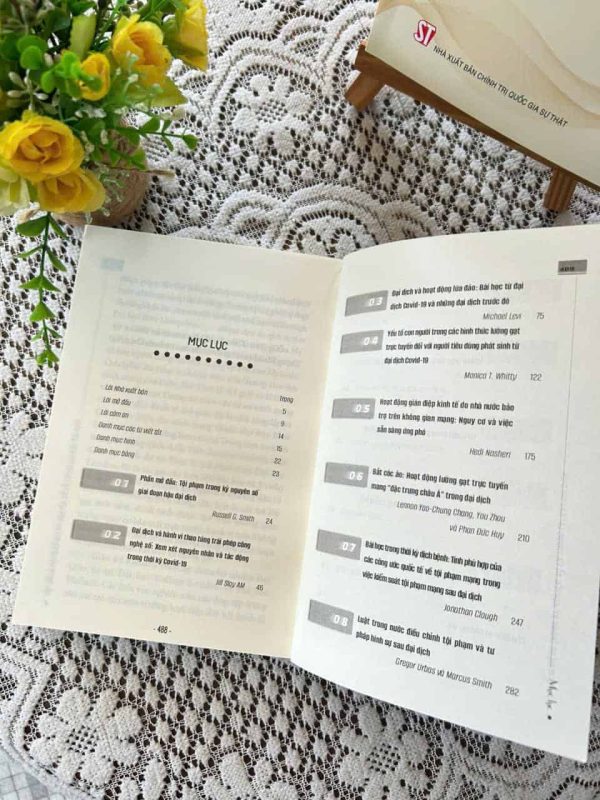 ST
NHÀ XUẤT BẢN CHÍNH TRỊ QUỐC GIA SỰ THẬT
MỤC LỤC
Trang
- Lời Nhà xuất bản 5
Lời mở đầu 9
Lời cảm ơn 14
Danh mục các từ viết tắt 15
Danh mục hình 22
Danh mục bảng 23
01 Phần mở đầu: Tội phạm trong kỷ nguyên số
giai đoạn hậu đại dịch
Russell G. Smith 24
02 Đại dịch và hành vi theo hàng trái phép công
nghệ số: Xem xét nguyên nhân và tác động
trong thời kỳ Covid-19
Jill Slay AM 45
- 488 -
03 Đại dịch và hoạt động lừa đảo: Bài học từ đại
dịch Covid-19 và những đại dịch trước đó
Michael Levi 75
04 Yếu tố con người trong các hình thức lường gạt
trực tuyến đối với người tiêu dùng phát sinh từ
đại dịch Covid-19
Monica T. Whitty 122
05 Hoạt động gián điệp kinh tế do nhà nước bảo
trợ trên không gian mạng: Nguy cơ và việc
sẵn sàng ứng phó
Hedi Nasheri 175
06 Bắt các ảo: Hoạt động lường gạt trực tuyến
mang "đặc trưng châu Á" trong đại dịch
Lennon Yao-Chung Chang, You Zhou
và Phan Đức Huy 210
07 Bài học trong thời kỳ dịch bệnh: Tính phù hợp của
các công ước quốc tế về tội phạm mạng trong
việc kiểm soát tội phạm mạng sau đại dịch
Jonathan Clough 247
08 Luật trong nước điều chỉnh tội phạm và tư
pháp hình sự sau đại dịch
Gregor Urbas và Marcus Smith 282
Mục lục